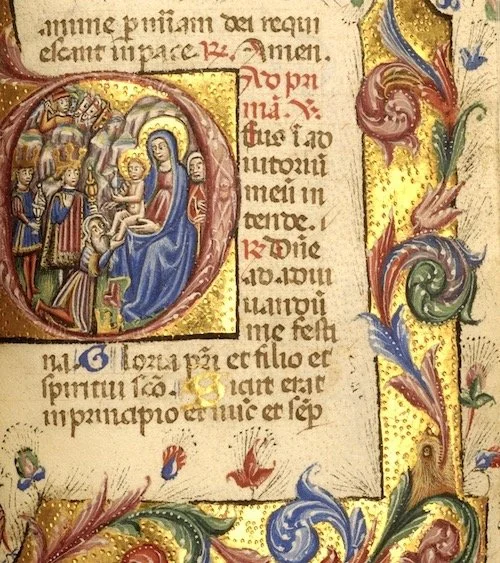 anime p̄ mīam dei requi
escant in pace. R. Amen.
Ad pri
mā. V.
Eus ī ad
iutoriū
meū in
tende. i
R. Dn̄e
ad adiu
uandū
me festi
na. Gloria pr̄i et filio et
spiritui sc̄o. Sicut erat
in principio et nūc et sēp